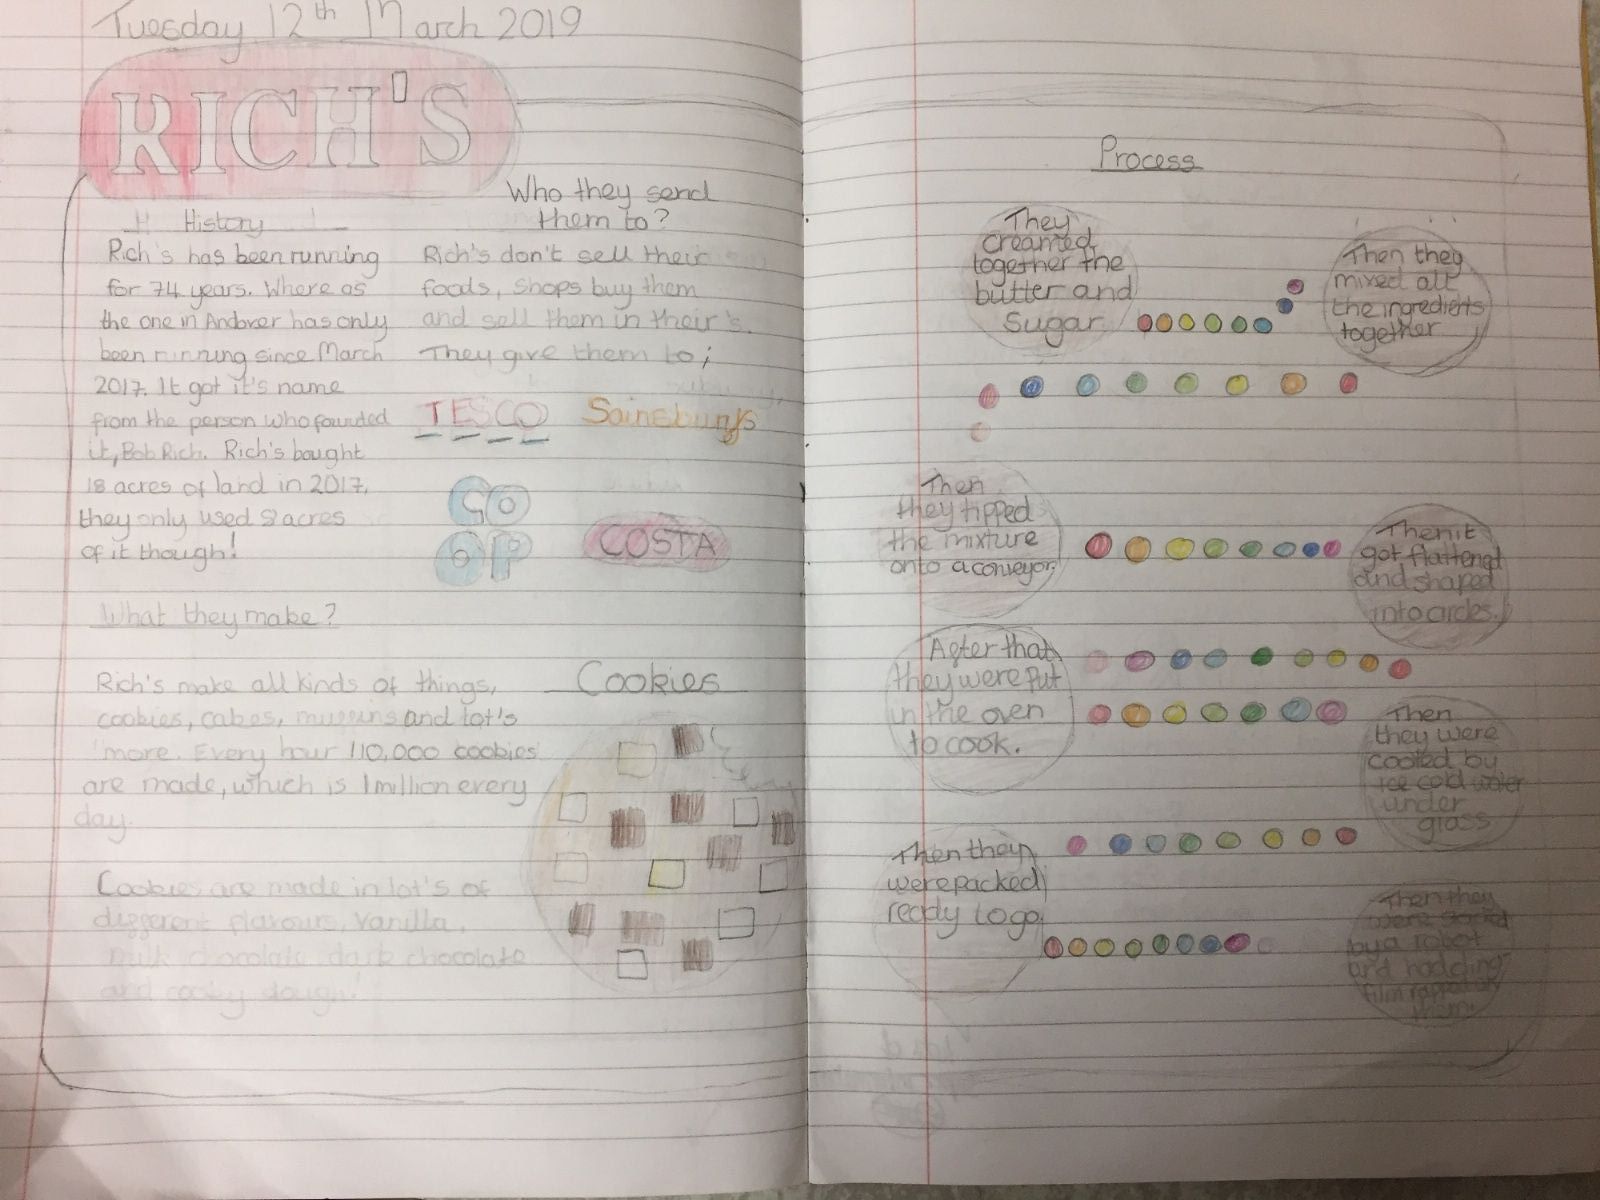 Tuesday 12th March 2019
RICH'S
History
Rich's has been running
for 74 years. Where as
the one in Andover has only
been running since March
2017. It got it's name
from the person who founded
it, Bob Rich. Rich's bought
18 acres of land in 2017,
they only used 8 acres
of it though!
Who they send
them to?
Rich's don't sell their
foods, shops buy them
and sell them in their's.
They give them to;
TESCO
Sainsbury's
CO
OP
COSTA
What they make?
Rich's make all kinds of things,
cookies, cakes, muffins and lot's
more. Every hour 110,000 cookies
are made, which is 1 million every
day.
Cookies are made in lot's of
different flavours, Vanilla,
milk chocolate, dark chocolate
and cooky dough!
Cookies
Process
They
creamed
together the
butter and
Sugar.
Then they
mixed all
the ingredients
together
Then
they tipped
the mixture
onto a conveyor.
Then it
got flattened
and shaped
into circles.
After that
they were put
in the oven
to cook.
Then
they were
cooled by
ice cold water
under
glass
Then they
were
by a robot
and
film rapped on
them.
Then they
were packed
ready to go.